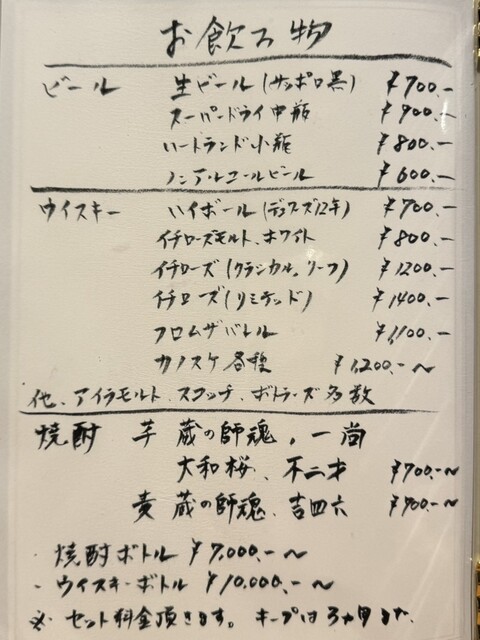 お飲み物
ビール 生ビール(サッポロ黒) ¥700.-
スーパードライ中瓶 ¥900.-
ハートランド小瓶 ¥800.-
ノンアルコールビール ¥600.-
ウイスキー ハイボール(デュワーズ12年) ¥700.-
イチローズモルト、ホワイト ¥800.-
イチローズ(クラシカル。リーフ) ¥1200.-
イチローズ(リミテッド) ¥1400.-
フロムザバレル ¥1,100.-
カノスケ各種 ¥1,200.-~
他、アイラモルト、スコッチ、ボトラーズ多数
焼酎 芋 蔵の師魂、一尚
大和桜、不二才 ¥700.-~
麦 蔵の師魂、吉四六 ¥700.-~
・焼酎ボトル ¥7,000.-~
・ウイスキーボトル ¥10,000.-~
※ セット料金頂きます。キープは3ヶ月まで